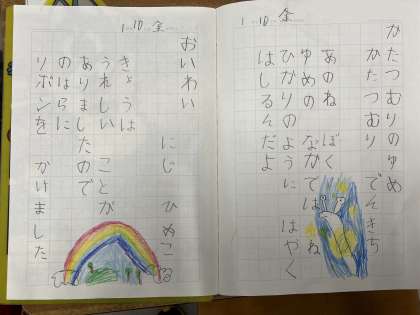 1 10 金
かたつむりのゆめ
かたつむり でんきち
あのね ぼく
ゆめの なかでは ね
ひかりのように はやく
はしるんだよ
1 10 金
おいわい
にじ ひめこ
きょうは
うれしい ことが
ありましたので
のはらに
リボンを かけました